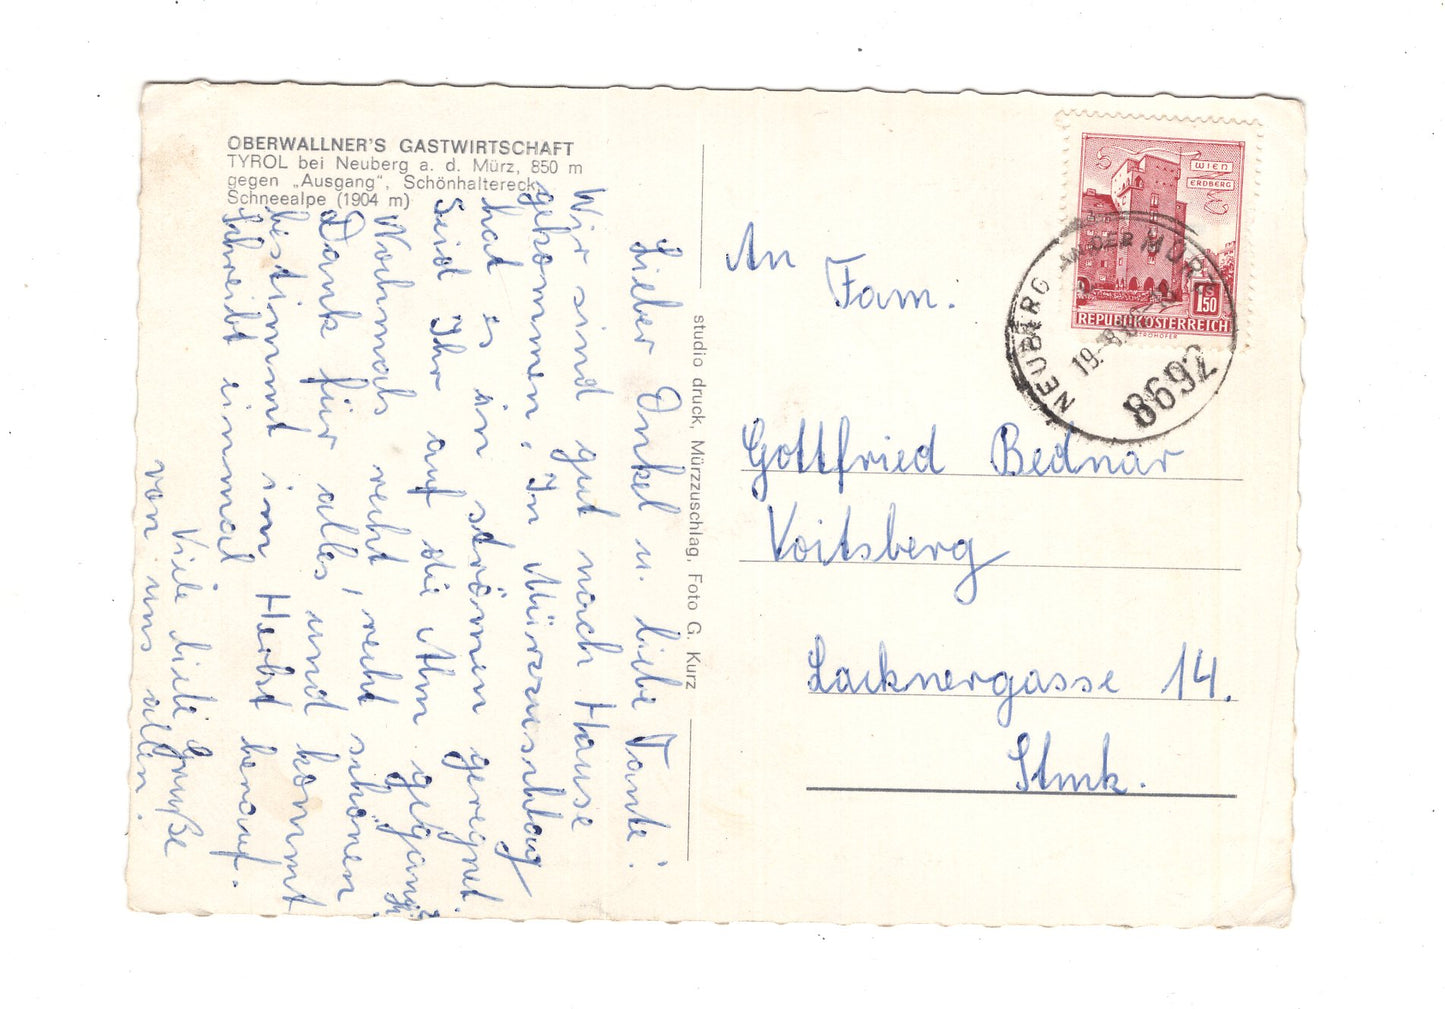 OBERWALLNER'S GASTWIRTSCHAFT
TYROL bei Neuberg a. d. Mürz, 850 m
gegen „Ausgang“, Schönhaltereck,
Schneealpe (1904 m)
Lieber Onkel u. liebe Tante!
Wir sind gut nach Hause
gekommen, In Mürzzuschlag
hat es in strömen geregnet.
Seid Ihr auf die Alm gegang?
Nochmals recht, recht schönen
Dank für alles, und kommt
bestimmt im Herbst herauf.
Schreibt einmal
Viele liebe Grüße
von uns allen.
studio druck, Mürzzuschlag, Foto G. Kurz
WIEN
ERDBERG
S
1.50
REPUBLIK ÖSTERREICH
NEUBERG AN DER MÜRZ
19.-8.
8692
An
Fam.
Gottfried Bednar
Voitsberg
Lacknergasse 14.
Stmk.